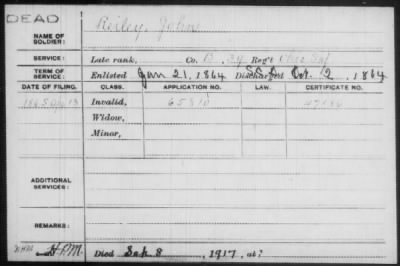 DEAD
NAME OF SOLDIER: Reiley, John
SERVICE: Late rank, Co. B, Reg't Ohio Inf
TERM OF SERVICE: Enlisted Jan 21, 1864 Discharged Oct. 12, 1864
DATE OF FILING. CLASS. APPLICATION NO. LAW. CERTIFICATE NO.
1865 Invalid, 65310
Widow,
Minor,
ADDITIONAL SERVICES:
REMARKS:
Died Sep. 8, 1917, at ?